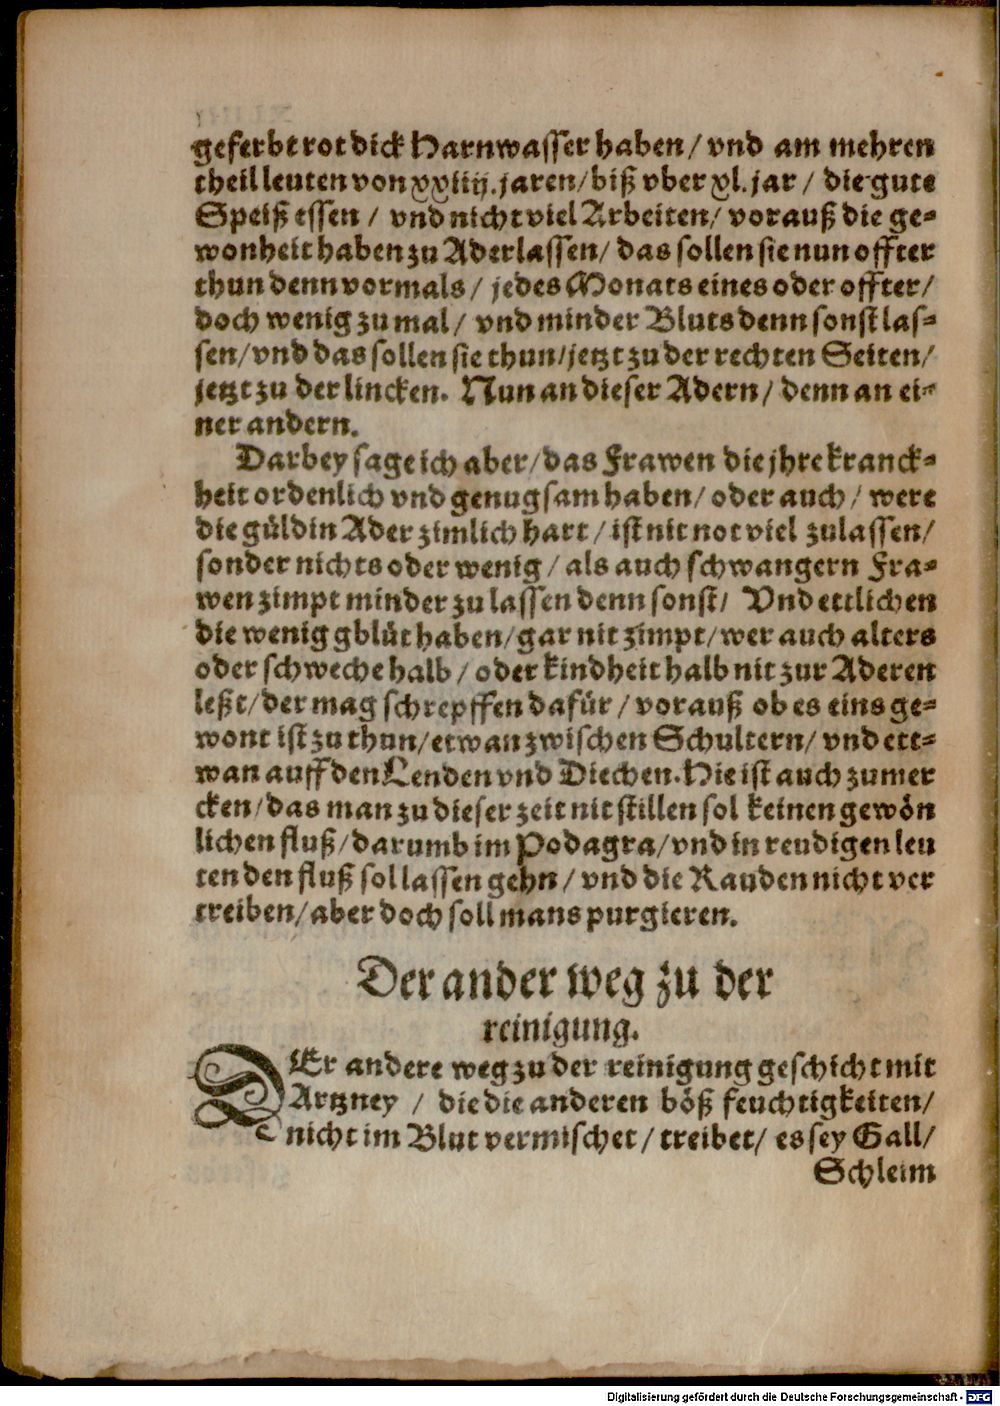 geferbt rot dick Harnwasser haben / vnd am mehren
theil leuten von xxiiij. jaren / biß vber xl. jar / die gute
Speiß essen / vnd nicht viel Arbeiten / vorauß die ge-
wonheit haben zu Aderlassen / das sollen sie nun offter
thun denn vormals / jedes Monats eines oder offter /
doch wenig zu mal / vnd minder Bluts denn sonst las-
sen / vnd das sollen sie thun / jetzt zu der rechten Seiten /
jetzt zu der lincken. Nun an dieser Adern / denn an ei-
ner andern.
Darbey sage ich aber / das Frawen die jhre kranck-
heit ordenlich vnd genugsam haben / oder auch / were
die güldin Ader zimlich hart / ist nit not viel zulassen /
sonder nichts oder wenig / als auch schwangern Fra-
wen zimpt minder zu lassen denn sonst / Vnd ettlichen
die wenig gblüt haben / gar nit zimpt / wer auch alters
oder schweche halb / oder kindheit halb nit zur Aderen
leßt / der mag schrepffen dafür / vorauß ob es eins ge-
wont ist zu thun / etwan zwischen Schultern / vnd ett-
wan auff den Lenden vnd Diechen. Hie ist auch zumer
cken / das man zu dieser zeit nit stillen sol keinen gewön
lichen fluß / darumb im Podagra / vnd in reudigen leu
ten den fluß sol lassen gehn / vnd die Rauden nicht ver
treiben / aber doch soll mans purgieren.
Der ander weg zu der
reinigung.
DEr andere weg zu der reinigung geschicht mit
Artzney / die die anderen böß feuchtigkeiten /
nicht im Blut vermischet / treibet / es sey Gall /
Schleim
Digitalisierung gefördert durch die Deutsche Forschungsgemeinschaft - DFG